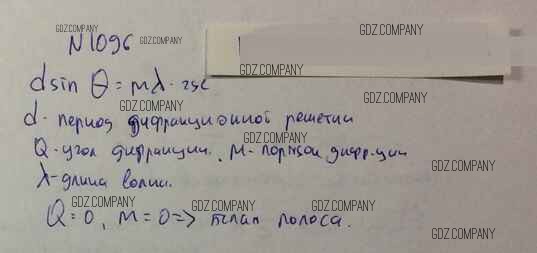 N1096
d sin θ = mλ -
d - период дифракционной решетки
Q - угол дифракции. m - порядок дифр-ции
λ - длина волны.
Q = 0, m = 0 => полоса.
GDZ.COMPANY
GDZ.COMPANY
GDZ.COMPANY
GDZ.COMPANY
GDZ.COMPANY
GDZ.COMPANY
GDZ.COMPANY
GDZ.COMPANY
GDZ.COMPANY
GDZ.COMPANY
GDZ.COMPANY
GDZ.COMPANY
GDZ.COMPANY
GDZ.COMPANY